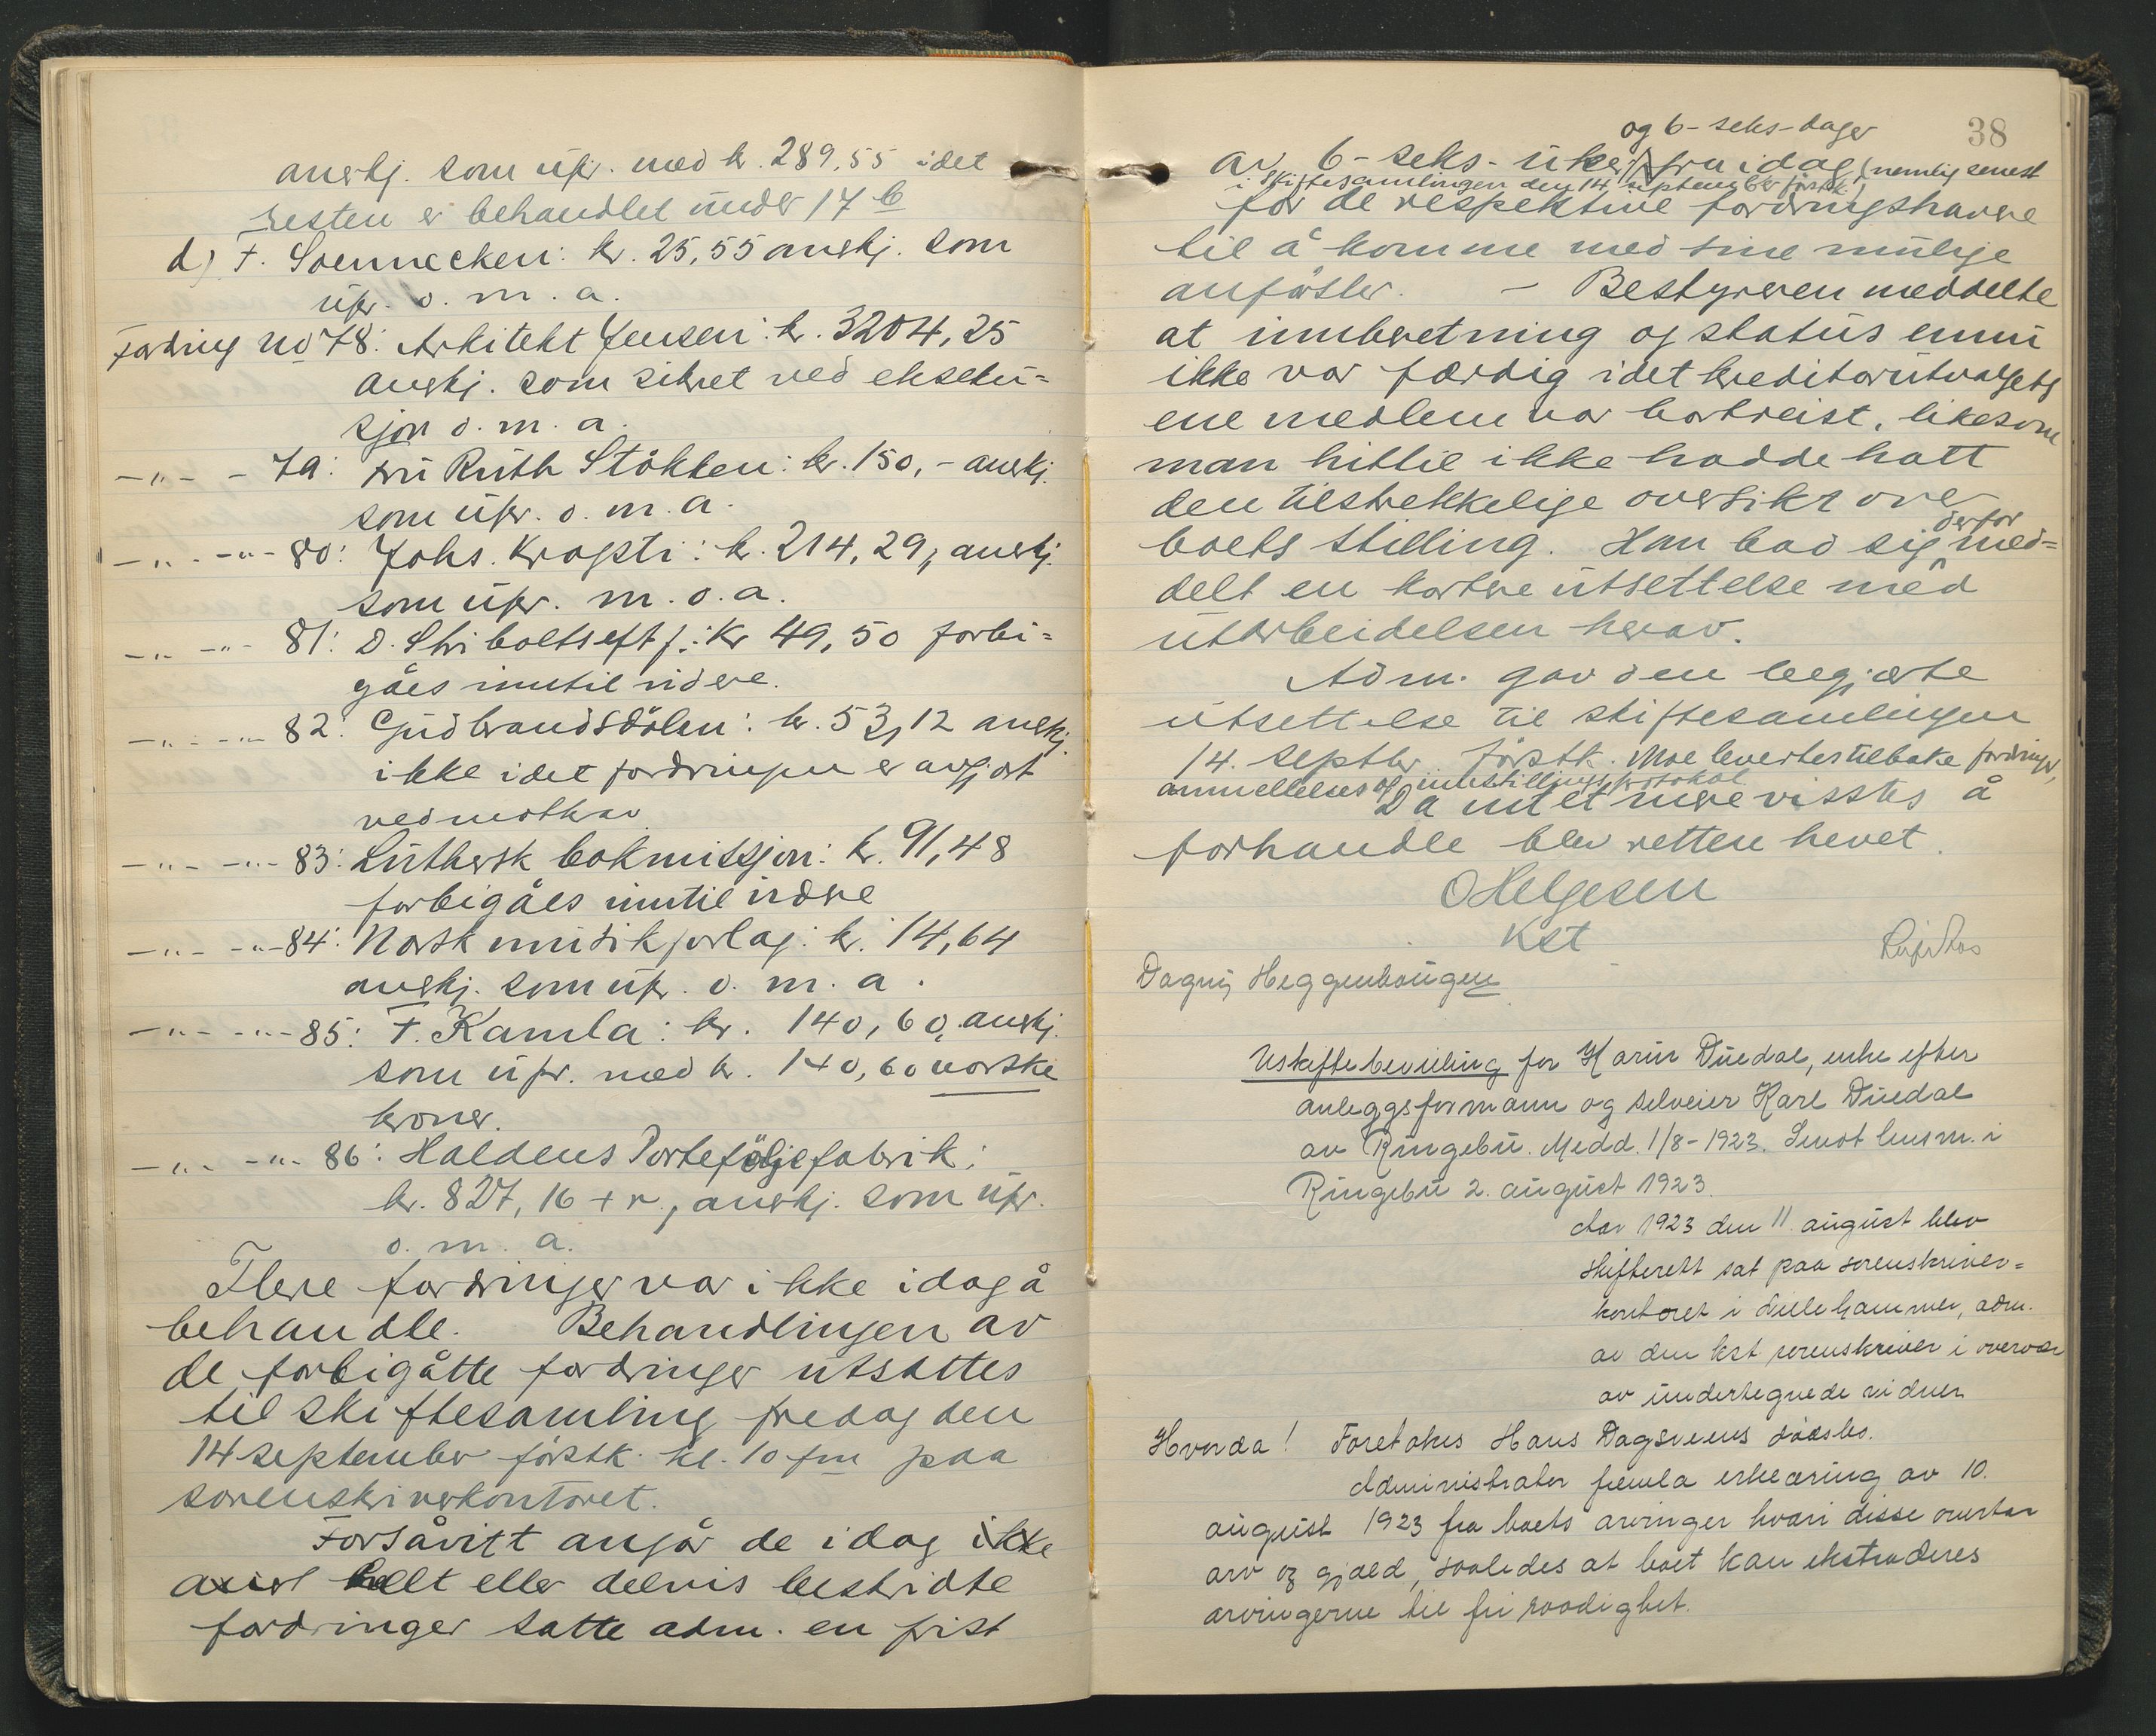 anerkj. som upr. med kr. 289,55 idet
resten er behandlet under 17 b
d) F. Soennecken: kr. 25,55 anerkj. som
upr. o. m. a.
Fordring No 78: Arkitekt Jensen: kr. 3204,25
anerkj. som sikret ved ekseku=
sjon o. m. a.
-"- - 79: fru Ruth Stökken: kr. 150,- anerkj.
som upr. o. m. a.
-"- -"- 80: Johs. Kragsti: kr. 214,29, anerkj.
som upr. m. o. a.
-"- -"- 81: D. Striboltseftf.: Kr 49,50 forbi=
gåes inntil videre.
-"- -"- 82: Gudbrandsdölen: kr. 53,12 anerkj.
ikke idet fordringen er avgjort
ved motkrav
-"- -"- 83: Luthersk bokmissjon: kr. 91,48
forbigåes inntil videre
-"- -"- 84: Norsk musikforlag: kr. 14,64
anerkj. som upr. o. m. a.
-"- -"- 85: F. Kamla: kr. 140,60, anerkj.
som upr. med kr. 140,60 norske
kroner.
-"- -"- 86: Haldens Porteföljefabrik:
kr. 827,16 + r., anerkj. som upr.
o. m. a.
Flere fordringer var ikke idag å
behandle. Behandlingen av
de forbigåtte fordringer utsattes
til skiftesamling fredag den
14 september förstk. kl. 10 fm paa
sorenskriverkontoret.
Forsåvitt angår de idag ikke
helt eller delvis bestridte
fordringer satte adm. en frist
38
og 6- seks-dager
av 6-seks-uker fra idag (nemlig senest
i skiftesamlingen den 14. september förstk.)
for de respektive fordringshavere
til å komme med sine mulige
anförsler. - Bestyreren meddelte
at innberetning og status ennu
ikke var færdig idet kreditorutvalgets
ene medlem var bortreist, likesom
man hittil ikke hadde hatt
den tilstrekkelige oversikt over
boets stilling. Han bad sig derfor med=
delt en kortere utsettelse med
utarbeidelsen herav.
Adm. gav den begjærte
utsettelse til skiftesamlingen
14. septbr. förstk. Moe levertes tilbake fordringer,
anmeldelser og innstillingsprotokol
Da intet mere visstes å
forhandle blev retten hevet.
O Helgesen
Kst
Dagny Heggenhougen
Uskiftebevilling for Karin Duedal, enke efter
anleggsformann og selveier Karl Duedal
av Ringebu. Medd. 1/8-1923. Sendt lensm. i
Ringebu 2. august 1923.
Aar 1923 den 11. august blev
skifterett sat paa sorenskriver=
kontoret i Lillehammer, adm.
av den kst sorenskriver i overvær
av undertegnede vidner
Hvorda! Foretokes Hans Dagsveens dödsbo.
Administrator fremla erklæring av 10.
august 1923 fra boets arvinger hvori disse overtar
arv og gjæld, saaledes at boet kan ekstraderes
arvingerne til fri raadighet.